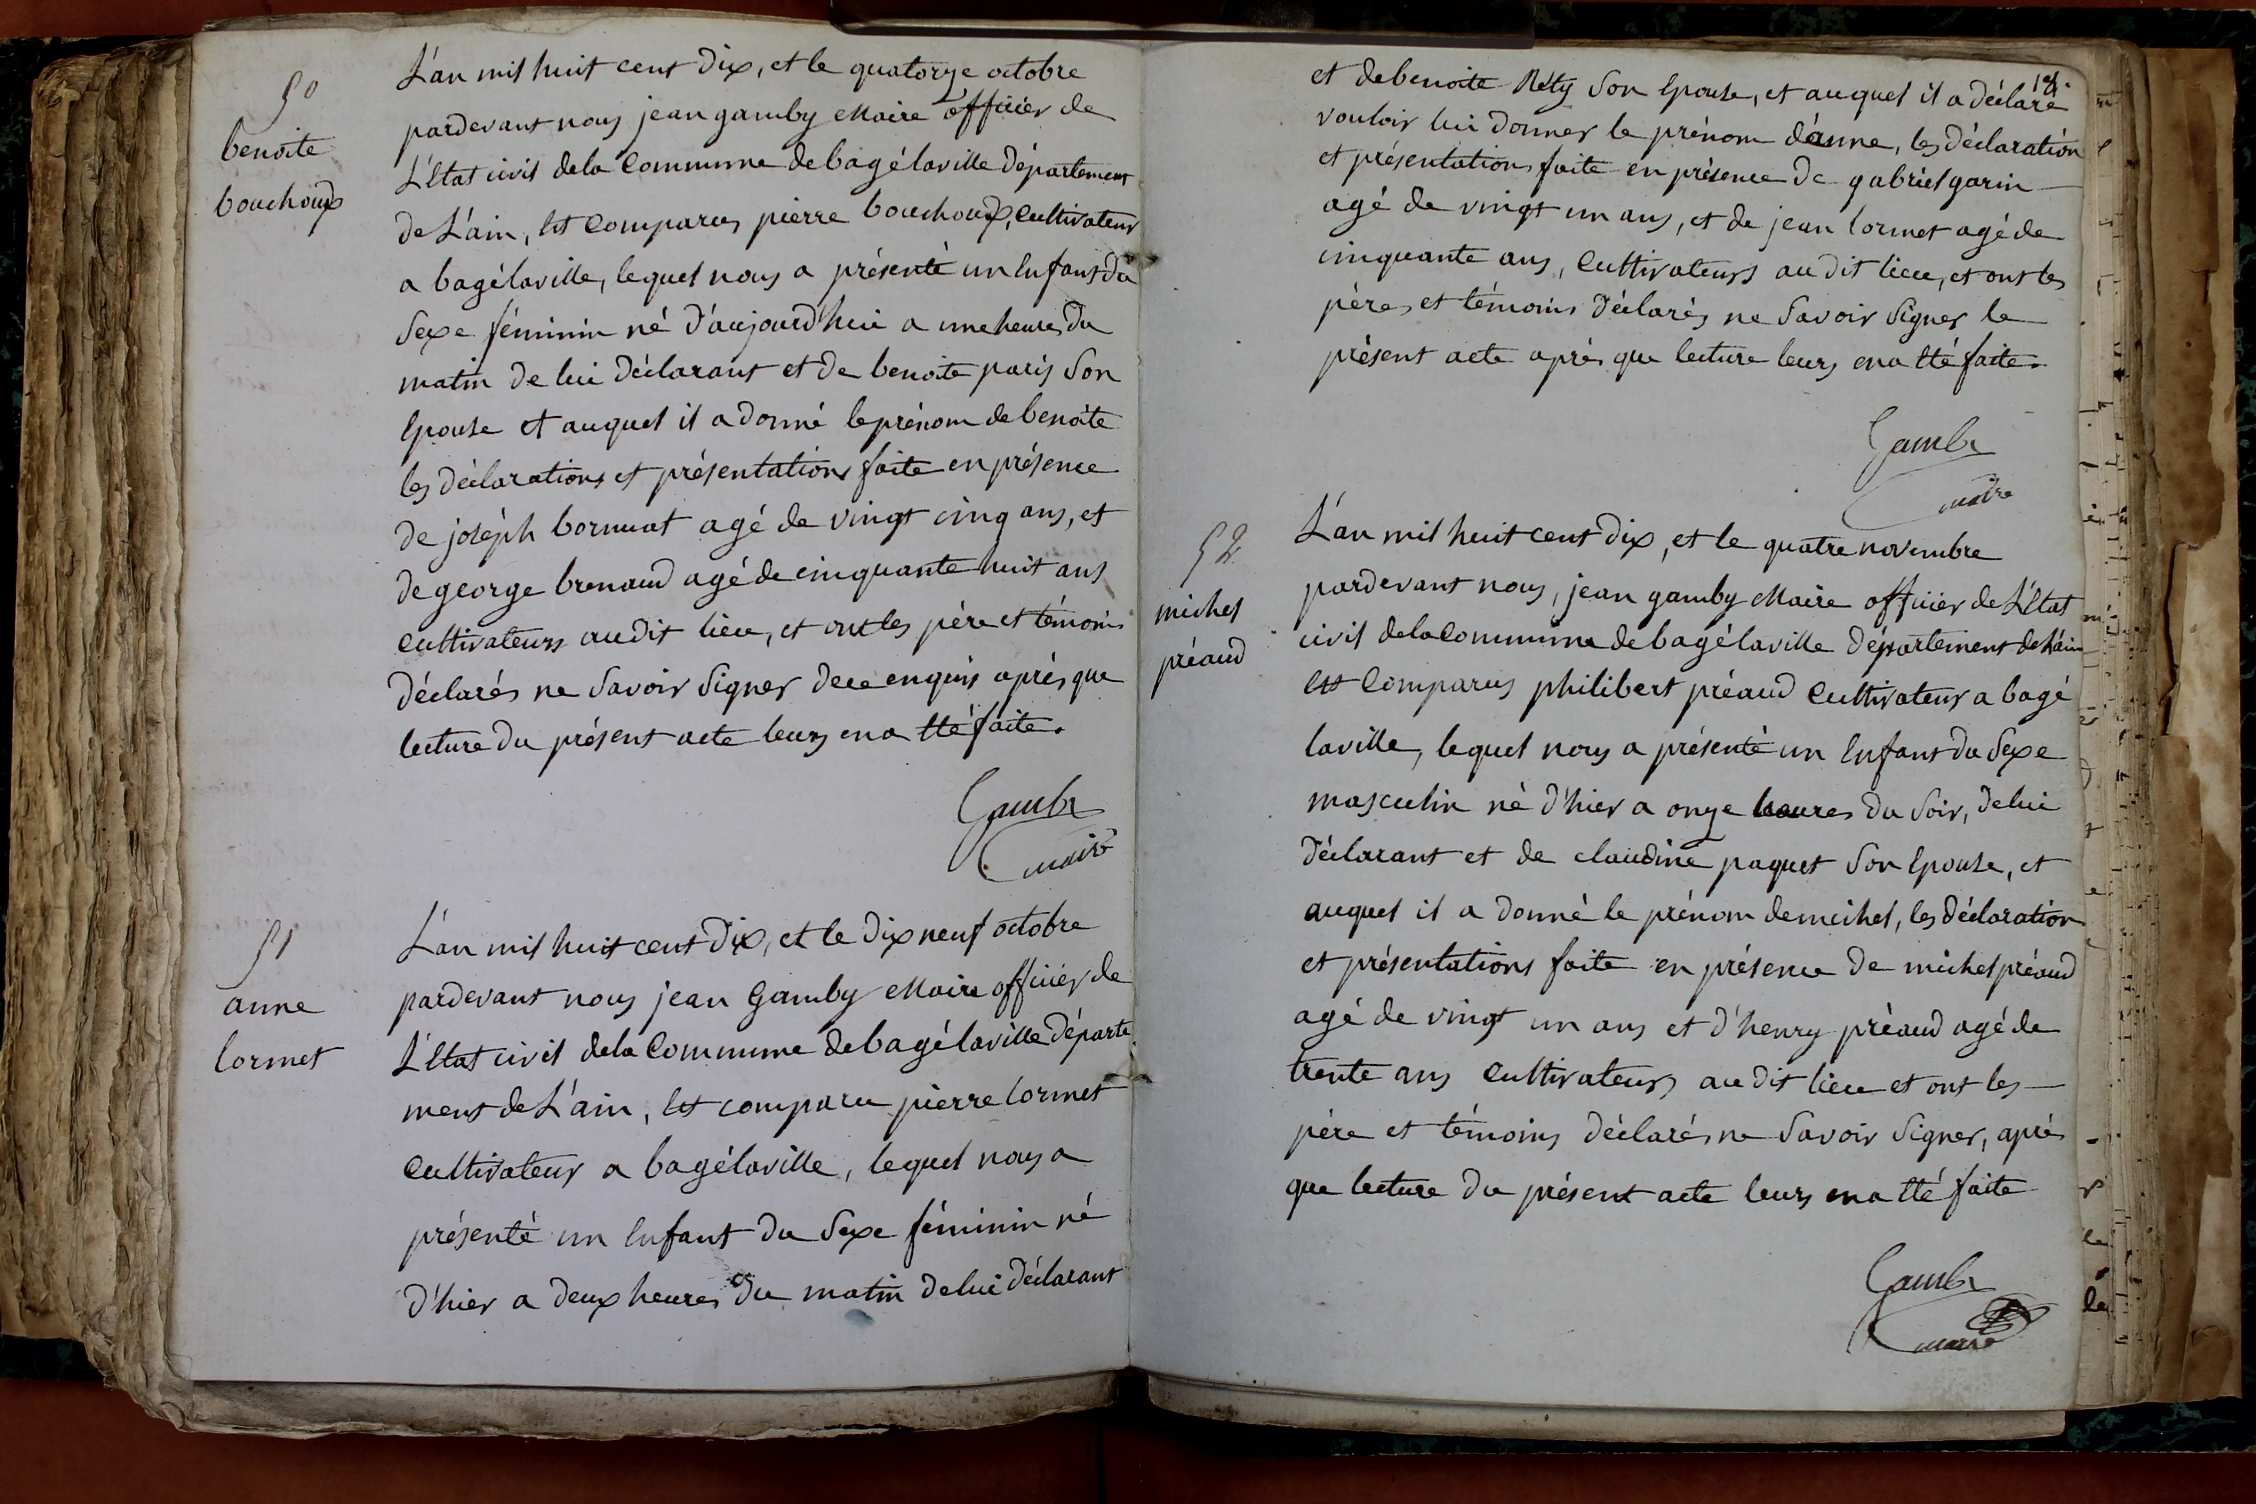 50
benoite
bouchoux
L'an mil huit cent dix, et le quatorze octobre
pardevant nous jean gamby Maire officier de
L'Etat civil dela Commune de bagélaville département
de L'ain, Est Comparus pierre bouchoux, Cultivateur
a bagélaville, lequel nous a présenté un Enfant du
Sexe féminin né d'aujourd'hui a une heures du
matin de lui déclarant et de benoite paris Son
Epouse et auquel il a donné le prénom de benoite
les déclarations et présentations faite en présence
de joséph bornuat agé de vingt cinq ans, et
de george brenaud agé de cinquante huit ans
Cultivateurs audit lieu, et ont les père et témoins
déclarés ne Savoir Signer dece enquis après que
lecture du présent acte leurs ena Eté faite.
Gamby
maire
51
anne
lormet
L'an mil huit cent dix, et le dix neuf octobre
pardevant nous jean Gamby Maire officier de
L'Etat civil dela Commune de bagélaville départe
ment de L'ain, Est comparu pierre lormet
Cultivateur a bagélaville, lequel nous a
présenté un Enfant du Sexe féminin né
d'hier a deux heures du matin delui déclarant
et debenoite Réty Son Epouse, et auquel il a déclaré
vouloir lui donner le prénom d'anne, les déclaration
et présentations faite en présence de gabriel garin
agé de vingt un ans, et de jean lormet agé de
cinquante ans, Cultivateurs au dit lieu, et ont les
pères et témoins déclarés ne Savoir Signer le
présent acte après que lecture leurs ena Eté faite.
Gamby
maire
52
michel
préaud
L'an mil huit cent dix, et le quatre novembre
pardevant nous, jean gamby Maire officier de L'Etat
civil dela Commune de bagélaville département de L'ain
Est Comparus philibert préaud Cultivateur a bagé
laville, lequel nous a présenté un Enfant du Sexe
masculin né d'hier a onze heures du Soir, delui
déclarant et de claudine paquet Son Epouse, et
auquel il a donné le prénom de meihel, les déclaration
et présentations faite en présence de michel préaud
agé de vingt un ans et d'henry préaud agé de
trente ans Cultivateurs au dit lieu et ont les
père et témoins déclarés ne Savoir Signer, après
que lecture du présent acte leurs ena Eté faite
Gamby
maire